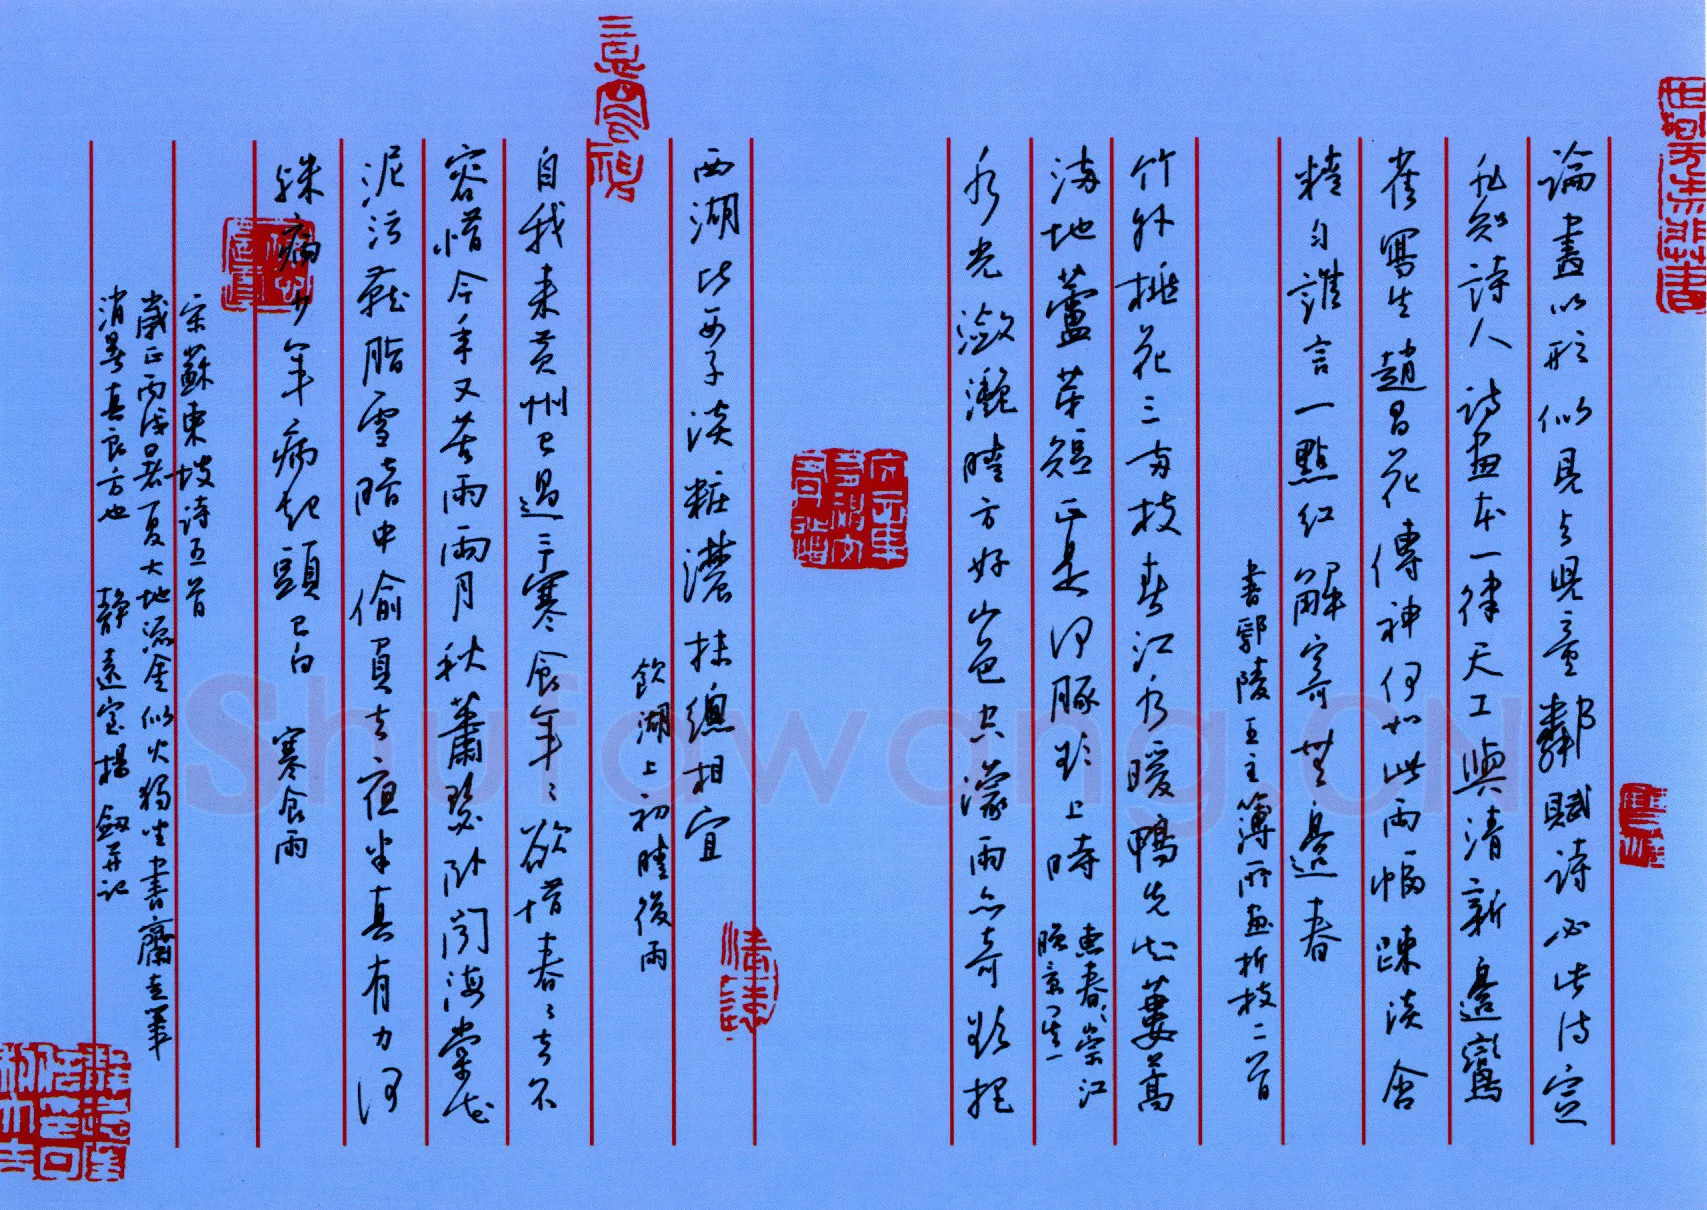 論畫以形似見與兒童鄰賦詩必此詩定
非知詩人詩畫本一律天工與清新邊鸞
雀寫生趙昌花傳神何如此兩幅疎淡含
精勻誰言一點紅解寄無邊春
書鄢陵王主簿所畫折枝二首
竹外桃花三兩枝春江水暖鴨先知蔞蒿
滿地蘆芽短正是河豚欲上時
惠春崇江
晚景
水光瀲灩晴方好山色空濛雨亦奇欲把
西湖比西子淡粧濃抹總相宜
飲湖上初晴後雨
自我來黃州已過三寒食年〻欲惜春〻去不
容惜今年又苦雨兩月秋蕭瑟臥聞海棠花
泥污燕脂雪暗中偷負去夜半真有力何
殊病少年病起頭已白 寒食雨
宋蘇東坡詩五首
歲正丙戌暑夏大地流金似火獨坐書齋走筆
消暑真良方也 靜遠室楊劍并記
Shufawang.CN